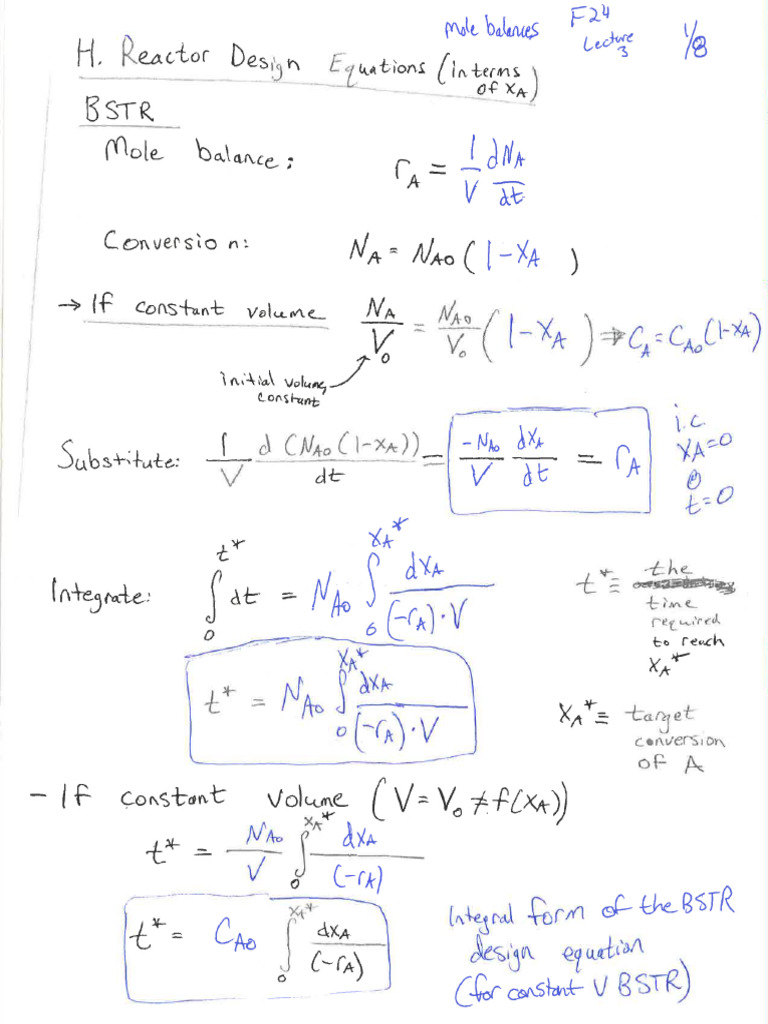 mole balances F24 Lecture 3 1/8
H. Reactor Design Equations (in terms of XA)
BSTR
Mole balance: rA = 1/V dNA/dt
Conversion: NA = NA0 (1-XA)
→ If constant volume NA/V0 = NA0/V0 (1-XA) ⇒ CA = CA0 (1-XA)
initial volume, constant
Substitute: 1/V d(NA0(1-XA))/dt = -NA0/V dXA/dt = rA
i.c. XA=0 @ t=0
Integrate: ∫₀^t* dt = NA0 ∫₀^XA* dXA/((-rA)·V)
t* ≡ the time required to reach XA*
t* = NA0 ∫₀^XA* dXA/((-rA)·V)
XA* ≡ target conversion of A
- If constant volume (V = V0 ≠ f(XA))
t* = NA0/V ∫₀^XA* dXA/(-rA)
t* = CA0 ∫₀^XA* dXA/(-rA)
Integral form of the BSTR
design equation
(for constant V BSTR)